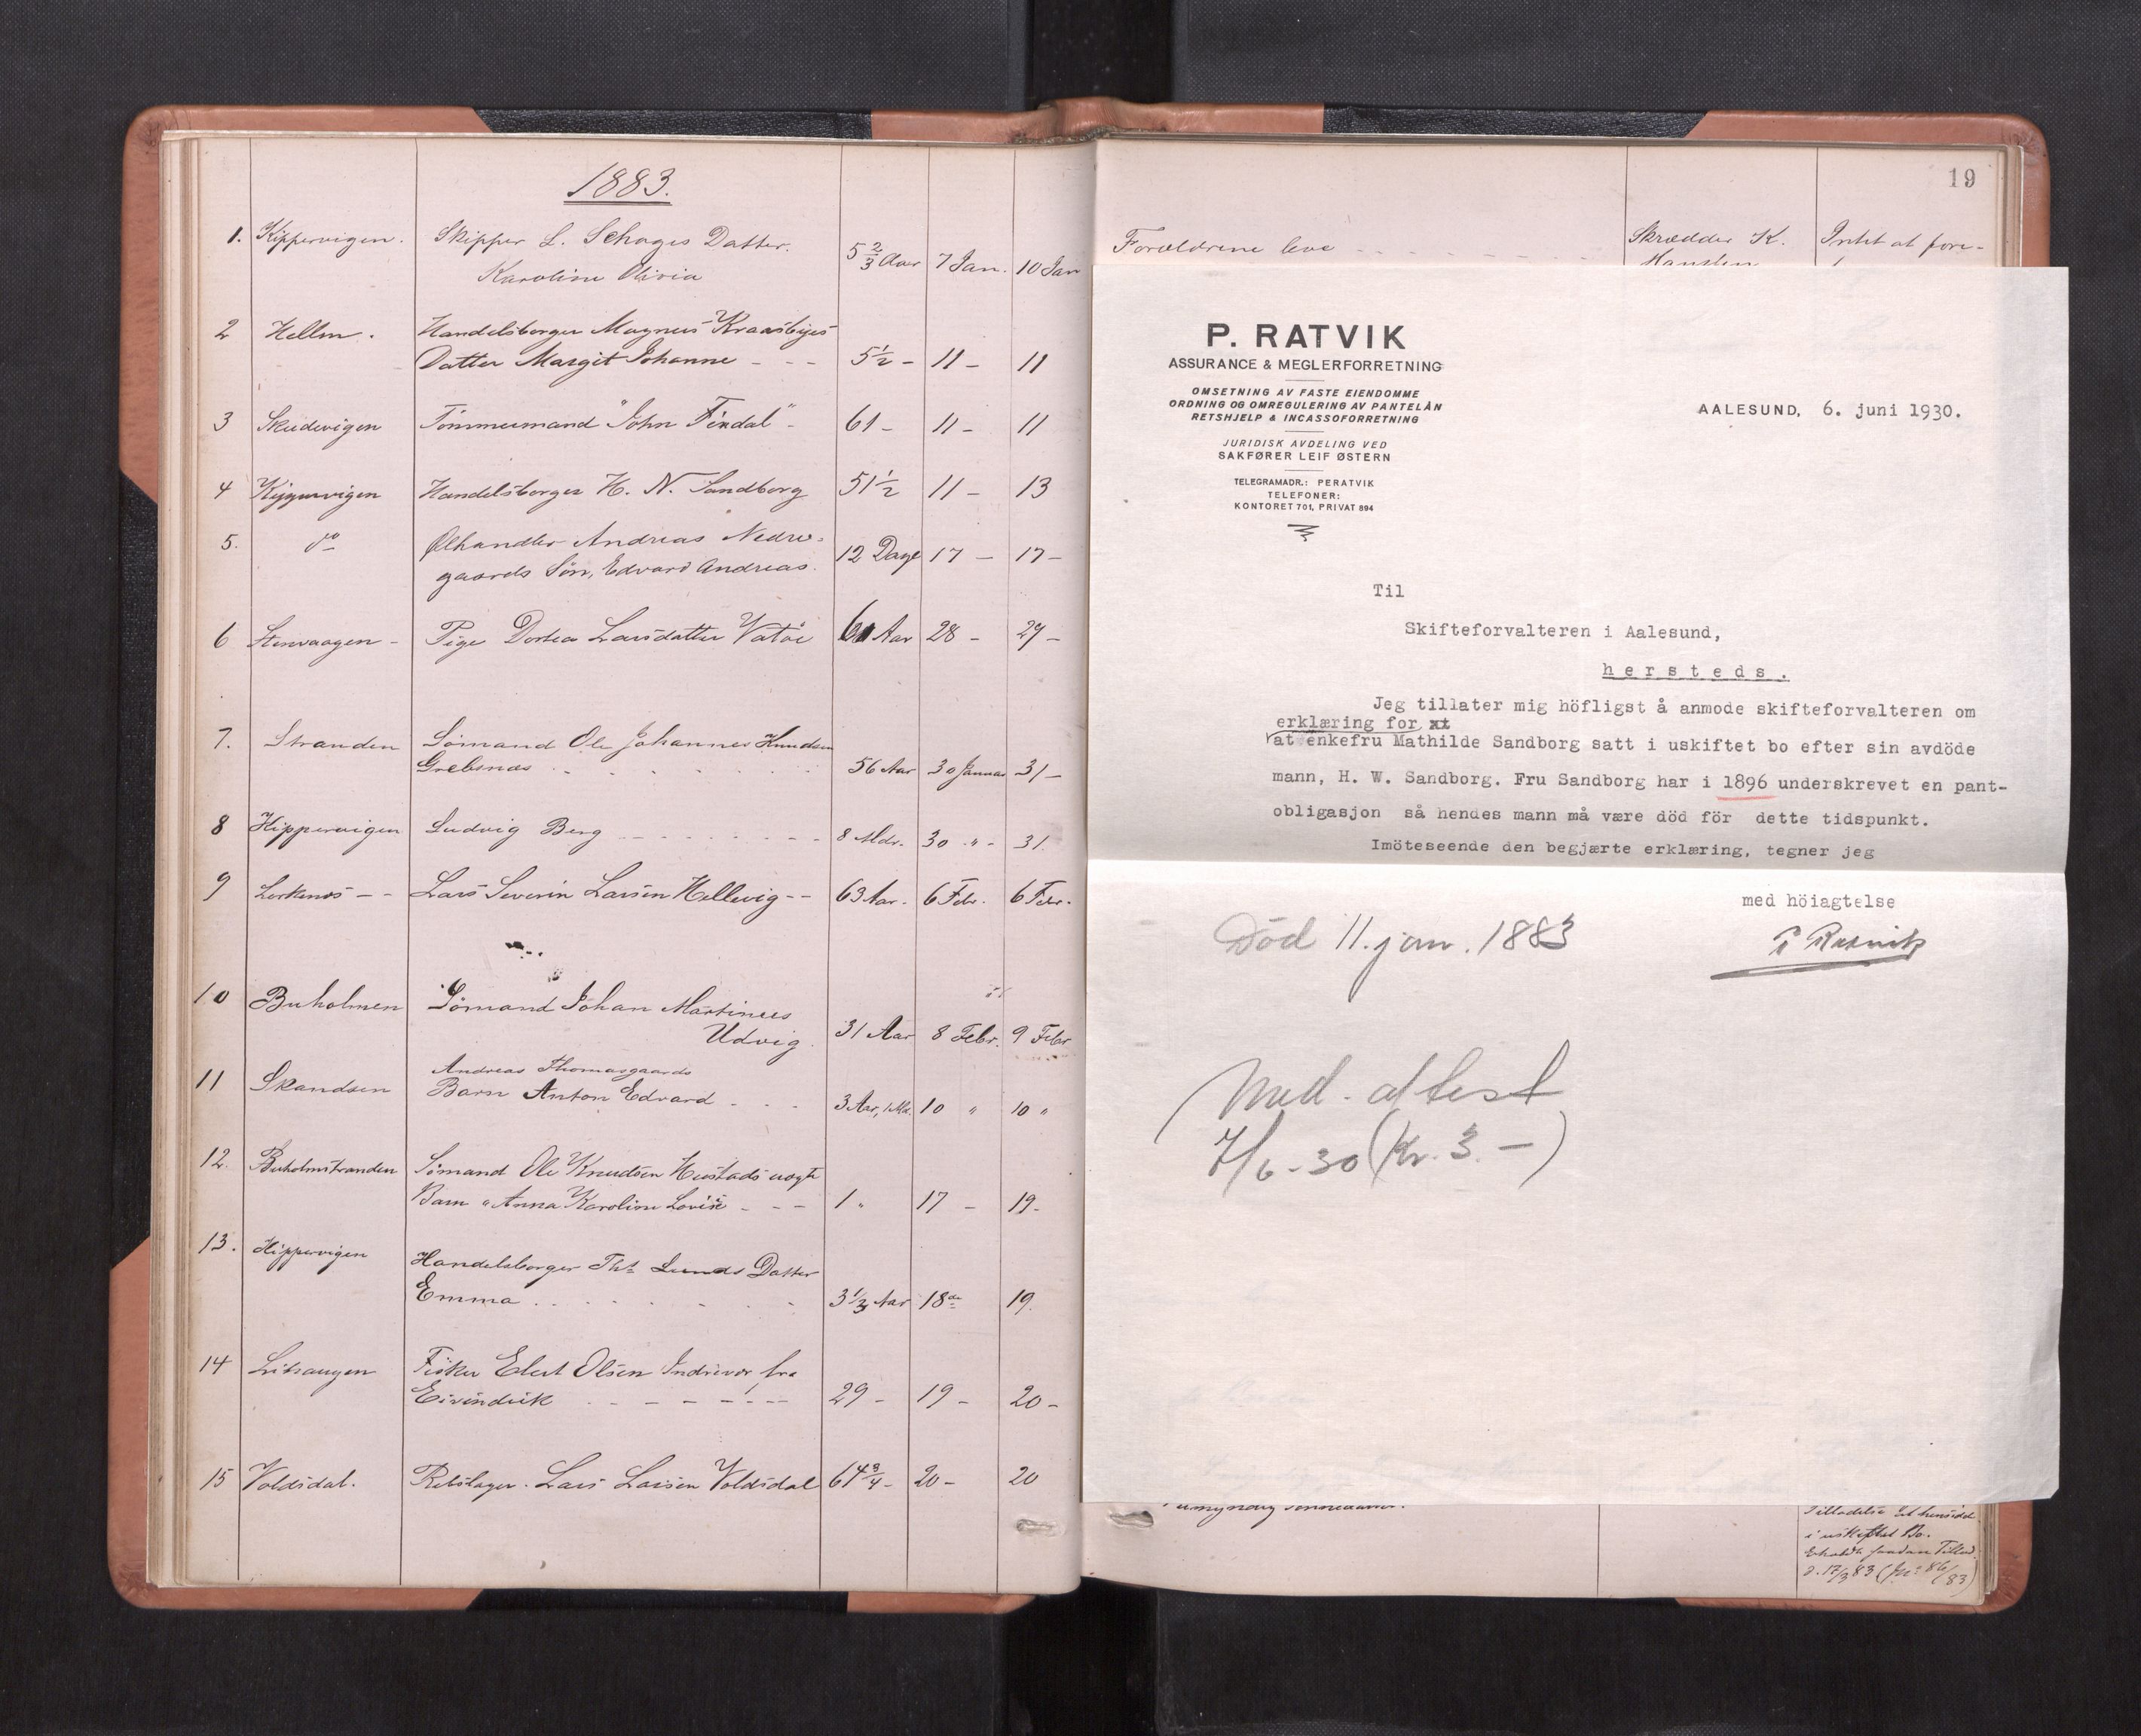 1883.
1. Kippervigen. Skipper L. Schages Datter. 5 2/3 Aar 7 Jan. 10 Jan
Karoline Olivia
2 Hellen. Handelsborger Magnus Kraasbyes
Datter Margit Johanne - - - 5½ - 11 - 11
3 Skudevigen Tömmermand "John Findal" - 61 - 11 - 11
4 Kippervigen Handelsborger H. N. Sandborg 51½ 11 - 13
5. do Ølhandler Andreas Nedre- 12 Dage 17 - 17 -
gaards Sön, Edvard Andreas.
6 Stenvaagen - Pige Dortea Larsdatter Vatöe 61 Aar 28 - 29 -
7. Stranden Sömand Ole Johannes Knudsen
Grebsnæs 56 Aar 30 Januar 31 -
8 Kippervigen Ludvig Berg 8 Mdr. 30 " - 31.
9 Lerkenæs - - Lars Severin Larsen Hellevig - - 63 Aar. 6 Febr. 6 Febr.
10 Buholmen Sömand Johan Martinus
Udvig. 31 Aar 8 Febr. 9 Febr
11 Skandsen Andreas Thomasgaards
Barn Anton Edvard - - - 3 Aar, 1 Md. 10 " 10 "
12. Buholmstranden Sömand Ole Knudsen Hustads uægte
Barn "Anna Karoline Lovise - - - 1 " 17 - 19 -
13. Kippervigen Handelsborger Ths Lunds Datter
Emma 3 1/3 Aar 18de 19.
14 Lihaugen Fisker Elert Olsen Indrevær fra
Eivindvik 29 - 19 - 20 -
15 Voldsdal. Rebslager Lars Larsen Voldsdal 64 3/4 - 20 - 20
19
Forældrene leve Skrædder K. Intet at fore-
Hansen
P. RATVIK
ASSURANCE & MEGLERFORRETNING
OMSETNING AV FASTE EIENDOMME
ORDNING OG OMREGULERING AV PANTELÅN
RETSHJELP & INCASSOFORRETNING
JURIDISK AVDELING VED
SAKFØRER LEIF ØSTERN
TELEGRAMADR.: PERATVIK
TELEFONER:
KONTORET 701, PRIVAT 894
AALESUND, 6. juni 1930.
Til
Skifteforvalteren i Aalesund,
hersteds.
Jeg tillater mig höfligst å anmode skifteforvalteren om
erklæring for xt
at enkefru Mathilde Sandborg satt i uskiftet bo efter sin avdöde
mann, H. W. Sandborg. Fru Sandborg har i 1896 underskrevet en pant-
obligasjon så hendes mann må være död för dette tidspunkt.
Imöteseende den begjærte erklæring, tegner jeg
med höiagtelse
P Ratvik
Död 11. jan. 1883
Med. attest
7/6-30 (Kr. 3. -)
Tilladelse til hensidd.
i uskiftet Bo.
Erholdt saadan Tillad.
d. 17/3 83 (Jnr 86/83)